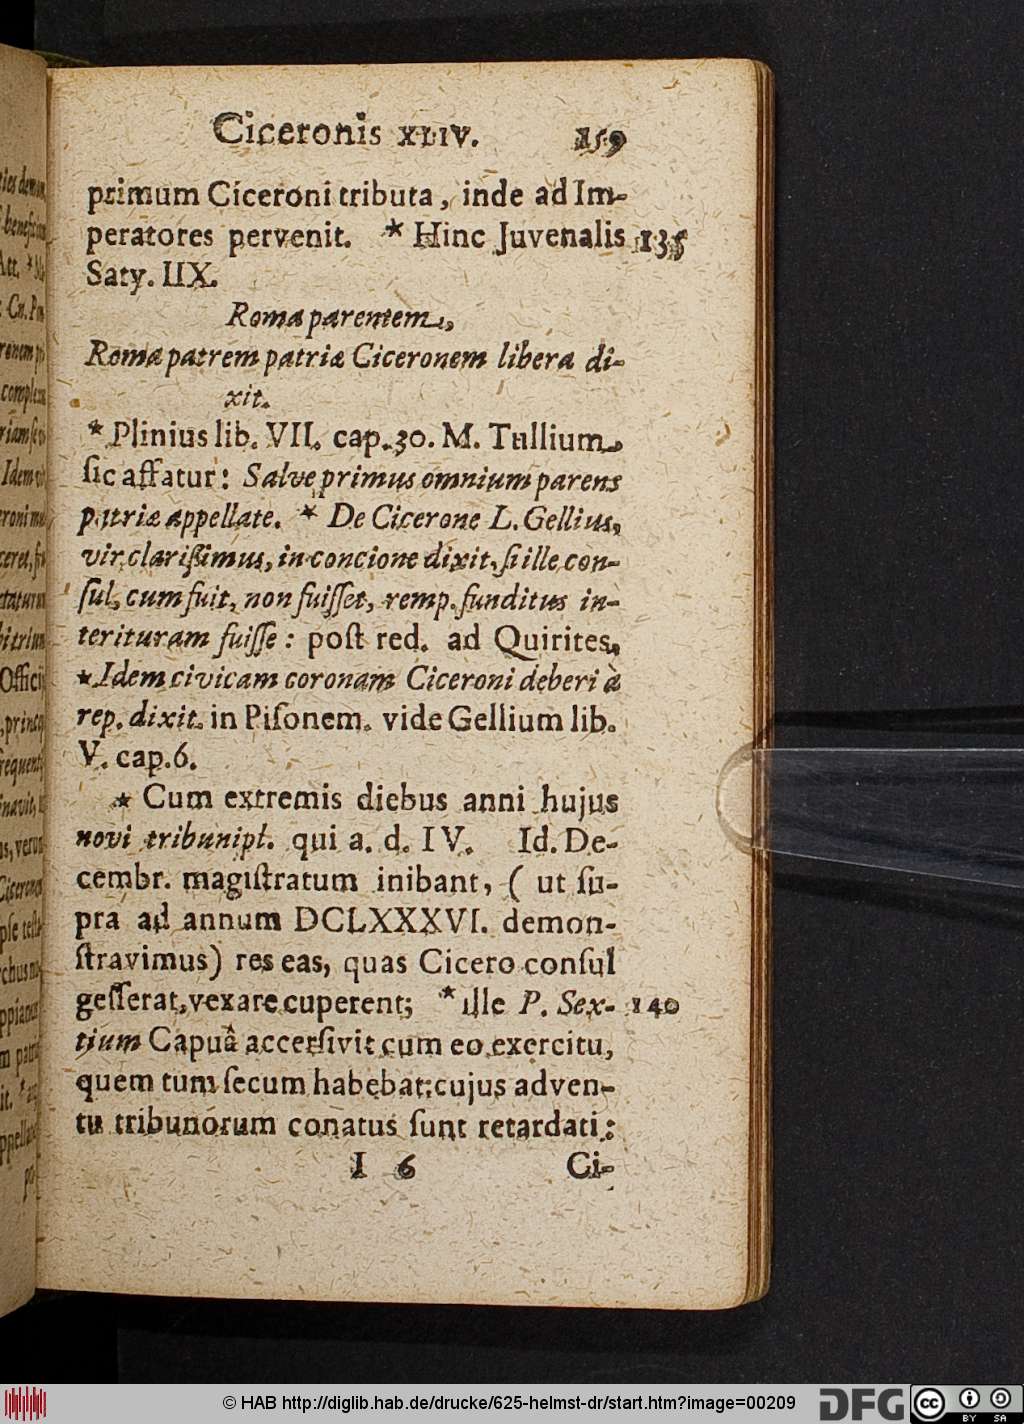 Ciceronis XLIV. 159
primum Ciceroni tributa, inde ad Im-
peratores pervenit. * Hinc Juvenalis 135
Saty. IIX.
Roma parentem,
Roma patrem patriæ Ciceronem libera di-
xit.
* Plinius lib. VII. cap. 30. M. Tullium
ſic affatur: Salve primus omnium parens
patriæ appellate. * De Cicerone L. Gellius,
vir clariſſimus, in concione dixit, ſi ille con-
ſul, cum fuit, non fuiſſet, remp. funditus in-
terituram fuiſſe: poſt red. ad Quirites,
* Idem civicam coronam Ciceroni deberi à
rep. dixit. in Piſonem. vide Gellium lib.
V. cap. 6.
* Cum extremis diebus anni hujus
novi tribunipl. qui a. d. IV. Id. De-
cembr. magiſtratum inibant, ( ut ſu-
pra ad annum DCLXXXVI. demon-
ſtravimus) res eas, quas Cicero conſul
geſſerat, vexare cuperent; * ille P. Sex- 140
tium Capuâ accerſivit cum eo exercitu,
quem tum ſecum habebat: cujus adven-
tu tribunorum conatus ſunt retardati:
I 6 Ci-
© HAB http://diglib.hab.de/drucke/625-helmst-dr/start.htm?image=00209 DFG cc BY SA